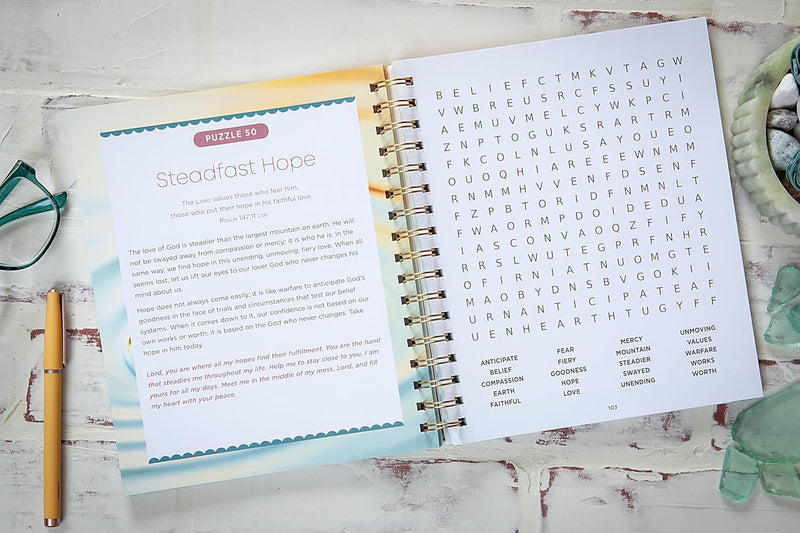 PUZZLE 50
Steadfast Hope
The LORD values those who fear him,
those who put their hope in his faithful love.
PSALM 147:11 CSB
The love of God is steadier than the largest mountain on earth. He will
not be swayed away from compassion or mercy; it is who he is. In the
same way, we find hope in this unending, unmoving, fiery love. When all
seems lost, let us lift our eyes to our lover God who never changes his
mind about us.
Hope does not always come easily; it is like warfare to anticipate God's
goodness in the face of trials and circumstances that test our belief
systems. When it comes down to it, our confidence is not based on our
own works or worth; it is based on the God who never changes. Take
hope in him today.
Lord, you are where all my hopes find their fulfillment. You are the hand
that steadies me throughout my life. Help me to stay close to you. I am
yours for all my days. Meet me in the middle of my mess, Lord, and fill
my heart with your peace.
B E L I E F C T M K V T A G W
V W B R E U S R C F S S U Y I
A E M U V M E L C Y W K P C I
Z N P T O G U K S R A R T R M
F K C O L N L U S A Y O U E O
O U O Q H I A R E E E W N M M
R N M M H V V E N F D S E N F
F Z P B T O R I D F N M N L T
F W A O R M P D O I D E D U A
I A S C O N V A O Q Z F I F Y
R R S L W U T E G P R F N H R
O F I R N I A T N U O M G T E
M A O B Y D N S B V G O K I I
U R N A N T I C I P A T E A F
U E N H E A R T H T U G Y F F
ANTICIPATE FEAR MERCY UNMOVING
BELIEF FIERY MOUNTAIN VALUES
COMPASSION GOODNESS STEADIER WARFARE
EARTH HOPE SWAYED WORKS
FAITHFUL LOVE UNENDING WORTH
103